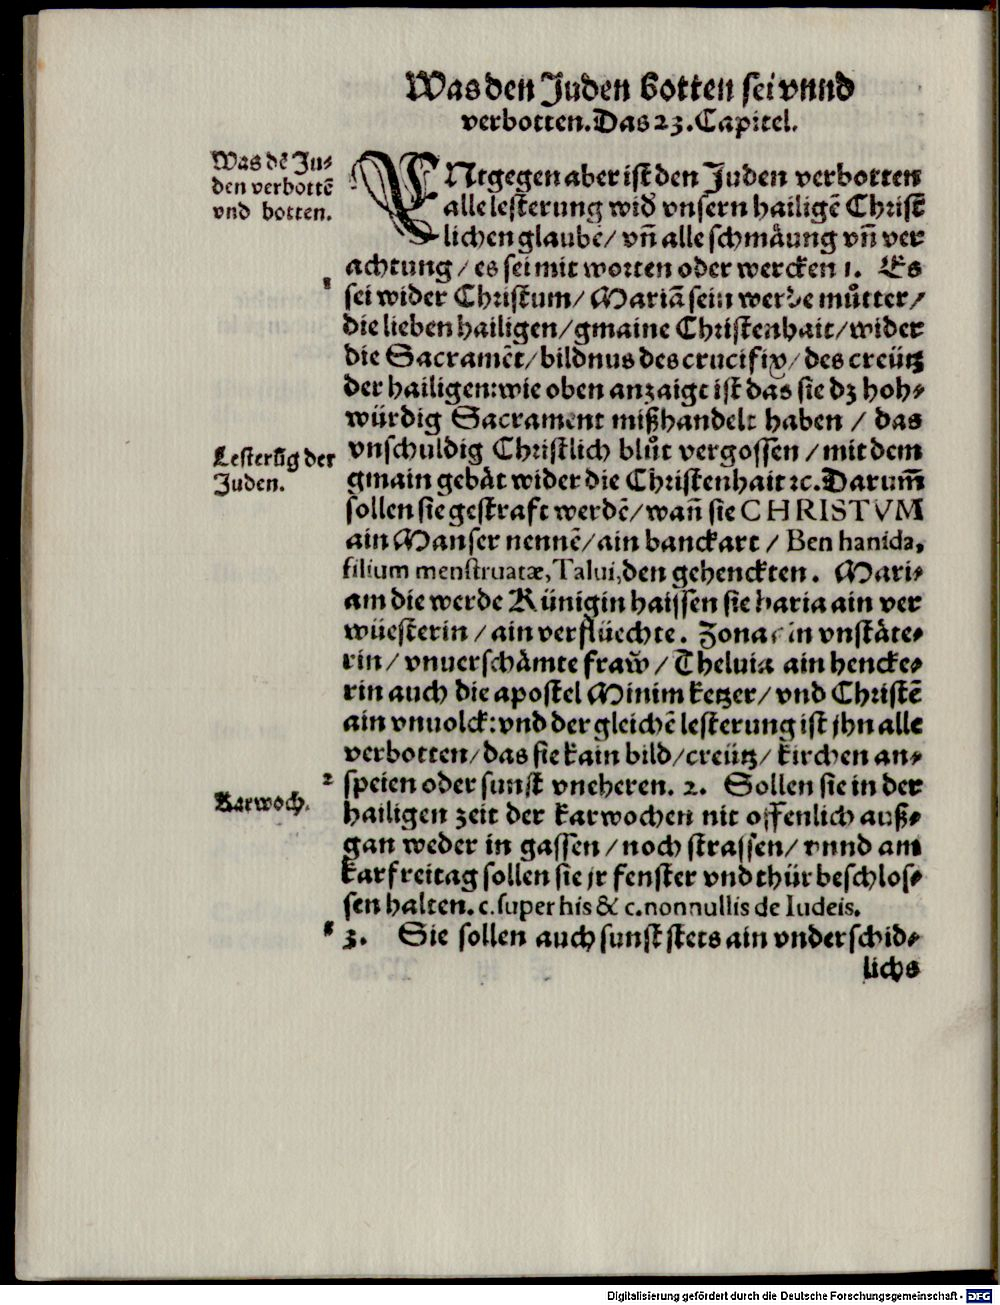 Was den Juden botten sei vnnd
verbotten. Das 23. Capitel.
Was dē Ju⸗
den verbottē
vnd botten.
ENtgegen aber ist den Juden verbotten
alle lesterung wid vnsern hailigē Christ
lichen glaubē/ vn̄ alle schmäung vn̄ ver
achtung/ es sei mit worten oder wercken 1. Es
1
sei wider Christum/ Mariā sein werde můtter/
die lieben hailigen/ gmaine Christenhait/ wider
die Sacramēt/ bildnus des crucifix/ des creütz
der hailigen: wie oben anzaigt ist das sie dz hoh⸗
würdig Sacrament mißhandelt haben / das
vnschuldig Christlich blůt vergossen / mit dem
Lesterūg der
Juden.
gmain gebät wider die Christenhait ꝛc. Darum̄
sollen sie gestraft werdē/ wan̄ sie CHRISTVM
ain Manser nennē/ ain banckart / Ben hanida,
filium menstruatæ, Talui, den gehenckten. Mari⸗
am die werde Künigin haissen sie haria ain ver
wüesterin / ain verflüechte. Zona ein vnstäte⸗
rin/ vnuerschämte fraw̄ / Theluia ain hencke⸗
rin auch die apostel Minim ketzer/ vnd Christē
ain vnuolck: vnd der gleichē lesterung ist jhn alle
verbotten/ das sie kain bild/ creütz/ kirchen an⸗
2
speien oder sunst vneheren. 2. Sollen sie in der
Karwoch.
hailigen zeit der karwochen nit offenlich auß⸗
gan weder in gassen/ noch strassen/ vnnd am
karfreitag sollen sie jr fenster vnd thür beschlos⸗
sen halten. c. super his & c. nonnullis de Iudeis.
3. Sie sollen auch sunst stets ain vnderschid⸗
lichs
Digitalisierung gefördert durch die Deutsche Forschungsgemeinschaft - DFG